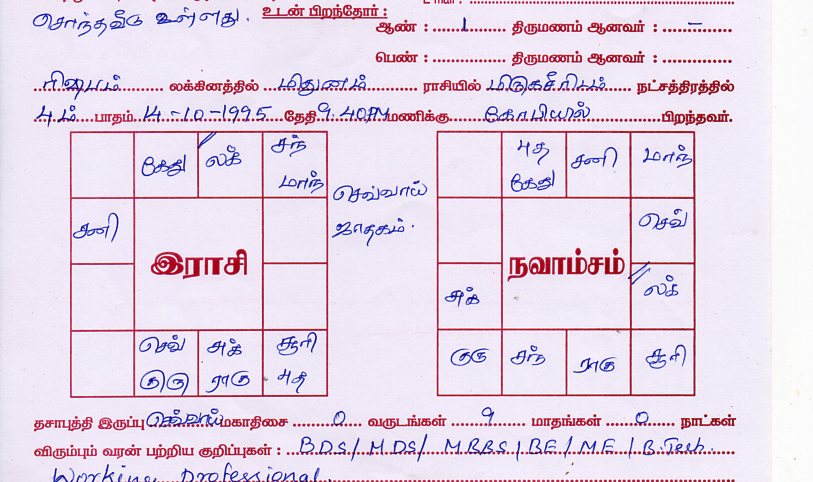 சொந்தவீடு உள்ளது. உடன் பிறந்தோர் :
ஆண் : 1 திருமணம் ஆனவர் : –
பெண் : திருமணம் ஆனவர் :
ரிஷபம் லக்கினத்தில் மிதுனம் ராசியில் மிருகசீரிடம் நட்சத்திரத்தில்
4ம் பாதம் 14-10-1995 தேதி 9.40PM மணிக்கு கோபியில் பிறந்தவர்.
கேது லக் சந் மாந்
சனி
இராசி
செவ் குரு சுக் ராகு சூரி புத
செவ்வாய்
ஜாதகம்.
புத கேது சனி மாந்
செவ்
நவாம்சம்
சுக் லக்
குரு சந் ராகு சூரி
தசாபுத்தி இருப்பு செவ்வாய் மகாதிசை 0 வருடங்கள் 9 மாதங்கள் 0 நாட்கள்
விரும்பும் வரன் பற்றிய குறிப்புகள் : BDS / MDS / MBBS / BE / ME / B.Tech.
Working Professional.